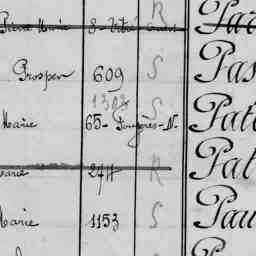 Pierre Marie 8 - Vitré R
Prosper 609 S Pas
1303
Marie 65 - Fougères - N. S Pat
Marie 244 R Pat
Marie 1153 S Pau